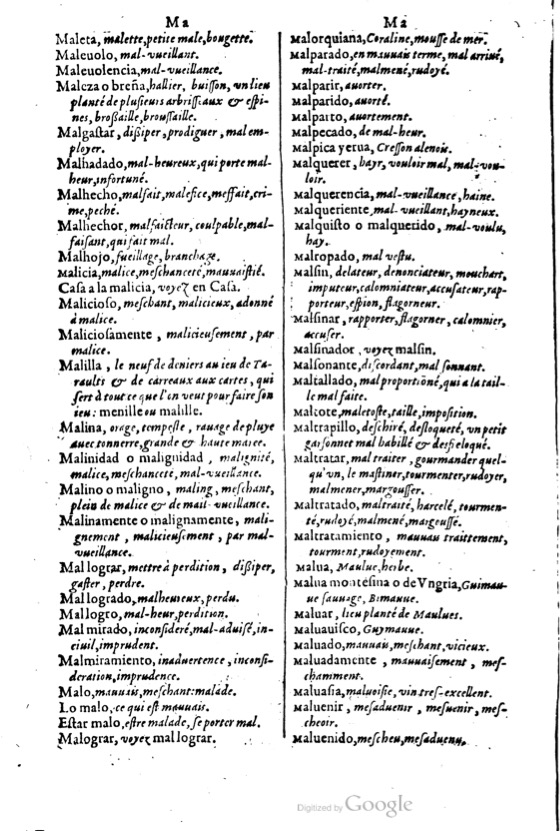 Ma
Maleta, malette, petite male, bougette.
Maleuolo, mal-vueillant.
Maleuolencia, mal-vueillance.
Malcza o breña, hallier, buisson, vn lieu
planté de plusieurs arbrisseaux & espi-
nes, broßaille, brouſſaille.
Malgaſtar, dißiper, prodiguer, mal em-
ployer.
Malhadado, mal-heureux, qui porte mal-
heur, infortuné.
Malhecho, malfait, malefice, meffait, cri-
me, peché.
Malhechor, malfaicteur, coulpable, mal-
faiſant, qui fait mal.
Malhojo, fueillage, branchage.
Malicia, malice, meſchanceté, mauuaiſtié.
Caſa a la malicia, voyez en Caſa.
Malicioſo, meſchant, malicieux, adonné
à malice.
Malicioſamente, malicieuſement, par
malice.
Malilla, le neuf de deniers au ieu de Ta-
raults & de carreaux aux cartes, qui
ſert à tout ce que l'on veut pour faire ſon
ieu: menille ou malille.
Malina, orage, tempeſte, rauage de pluye
auec tonnerre, grande & haute maree.
Malinidad o malignidad, malignité,
malice, meſchanceté, mal-vueillance.
Malino o maligno, maling, meſchant,
plein de malice & de mal-vueillance.
Malinamente o malignamente, mali-
gnement, malicieuſement, par mal-
vueillance.
Mal lograr, mettre à perdition, dißiper,
gaſter, perdre.
Mal logrado, malheureux, perdu.
Mal logro, mal-heur, perdition.
Mal mirado, inconſideré, mal-aduiſé, in-
ciuil, imprudent.
Malmiramiento, inaduertence, inconſi-
deration, imprudence.
Malo, mauuais, meſchant: malade.
Lo malo, ce qui eſt mauuais.
Eſtar malo, eſtre malade, ſe porter mal.
Malograr, voyez mal lograr.
Ma
Malorquiana, Coraline, mouſſe de mer.
Malparado, en mauuais terme, mal arriué,
mal-traité, malmené, rudoyé.
Malparir, auorter.
Malparido, auorté.
Malparto, auortement.
Malpecado, de mal-heur.
Malpica yerua, Creſſon alenois.
Malquerer, hayr, vouloir mal, mal-vou-
loir.
Malquerencia, mal-vueillance, haine.
Malqueriente, mal-vueillant, hayneux.
Malquiſto o malquerido, mal-voulu,
hay.
Malropado, mal veſtu.
Malſin, delateur, denonciateur, mouchart,
imputeur, calomniateur, accuſateur, rap-
porteur, eſpion, flagorneur.
Malſinar, rapporter, flagorner, calomnier,
accuſer.
Malſinador, voyez malſin.
Malſonante, diſcordant, mal ſonnant.
Maltallado, mal proportiōné, qui a la tail-
le mal faite.
Maltote, maletoſte, taille, impoſition.
Maltrapillo, deſchiré, deſloqueté, vn petit
garſonnet mal babillé & desfieloqué.
Maltratar, mal traiter, gourmander quel-
qu'vn, le maſtiner, tourmenter, rudoyer,
malmener, margouſſer.
Maltratado, maltraité, harcelé, tourmen-
té, rudoyé, malmené, margouſſé.
Maltratamiento, mauuau traittement,
tourment, rudoyement.
Malua, Maulue, herbe.
Malua montéſina o de Vngria, Guimau-
ue ſauuage, Bimauue.
Maluar, lieu planté de Maulues.
Maluauiſco, Guymauue.
Maluado, mauuais, meſchant, vicieux.
Maluadamente, mauuaiſement, meſ-
chamment.
Maluaſia, maluoiſie, vin tres-excellent.
Maluenir, meſaduenir, meſuenir, meſ-
cheoir.
Maluenido, meſcheu, meſaduenu.
Digitized by Google